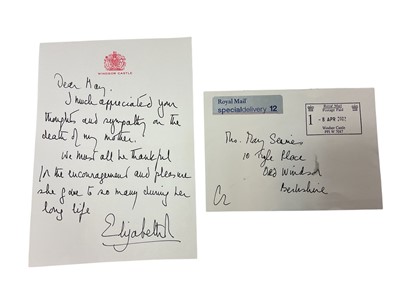 WINDSOR CASTLE
Dear May,
I much appreciated your
thoughts and sympathy on the
death of my mother.
We must all be thankful
for the encouragement and pleasure
she gave to so many during her
long life
Elizabeth R
Royal Mail
specialdelivery 12
Royal Mail
Postage Paid
1 - 8 APR 2002
Windsor Castle
Mrs. May
10 Place
Old Windsor
Berkshire